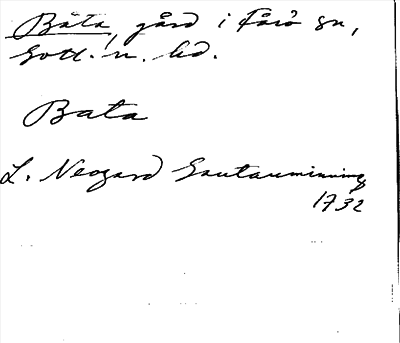 Bäta, gård i Fårö sn,
Gotl. n. hd.
Bata
L. Neogard Gautauminning
1732